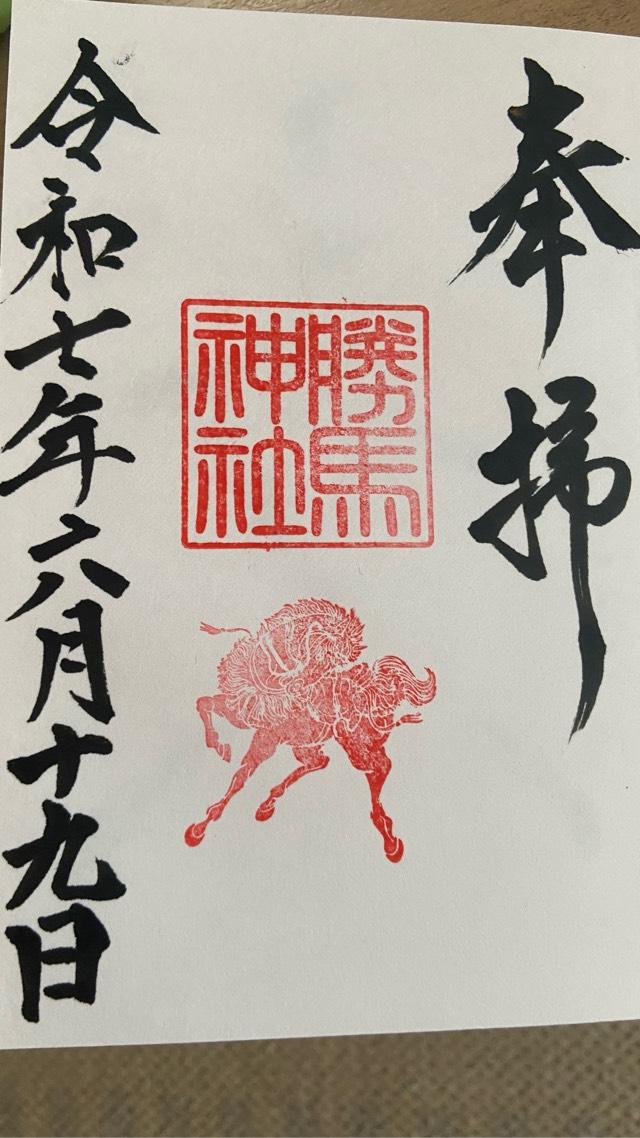 奉拝
勝馬
神社
令和七年六月十九日